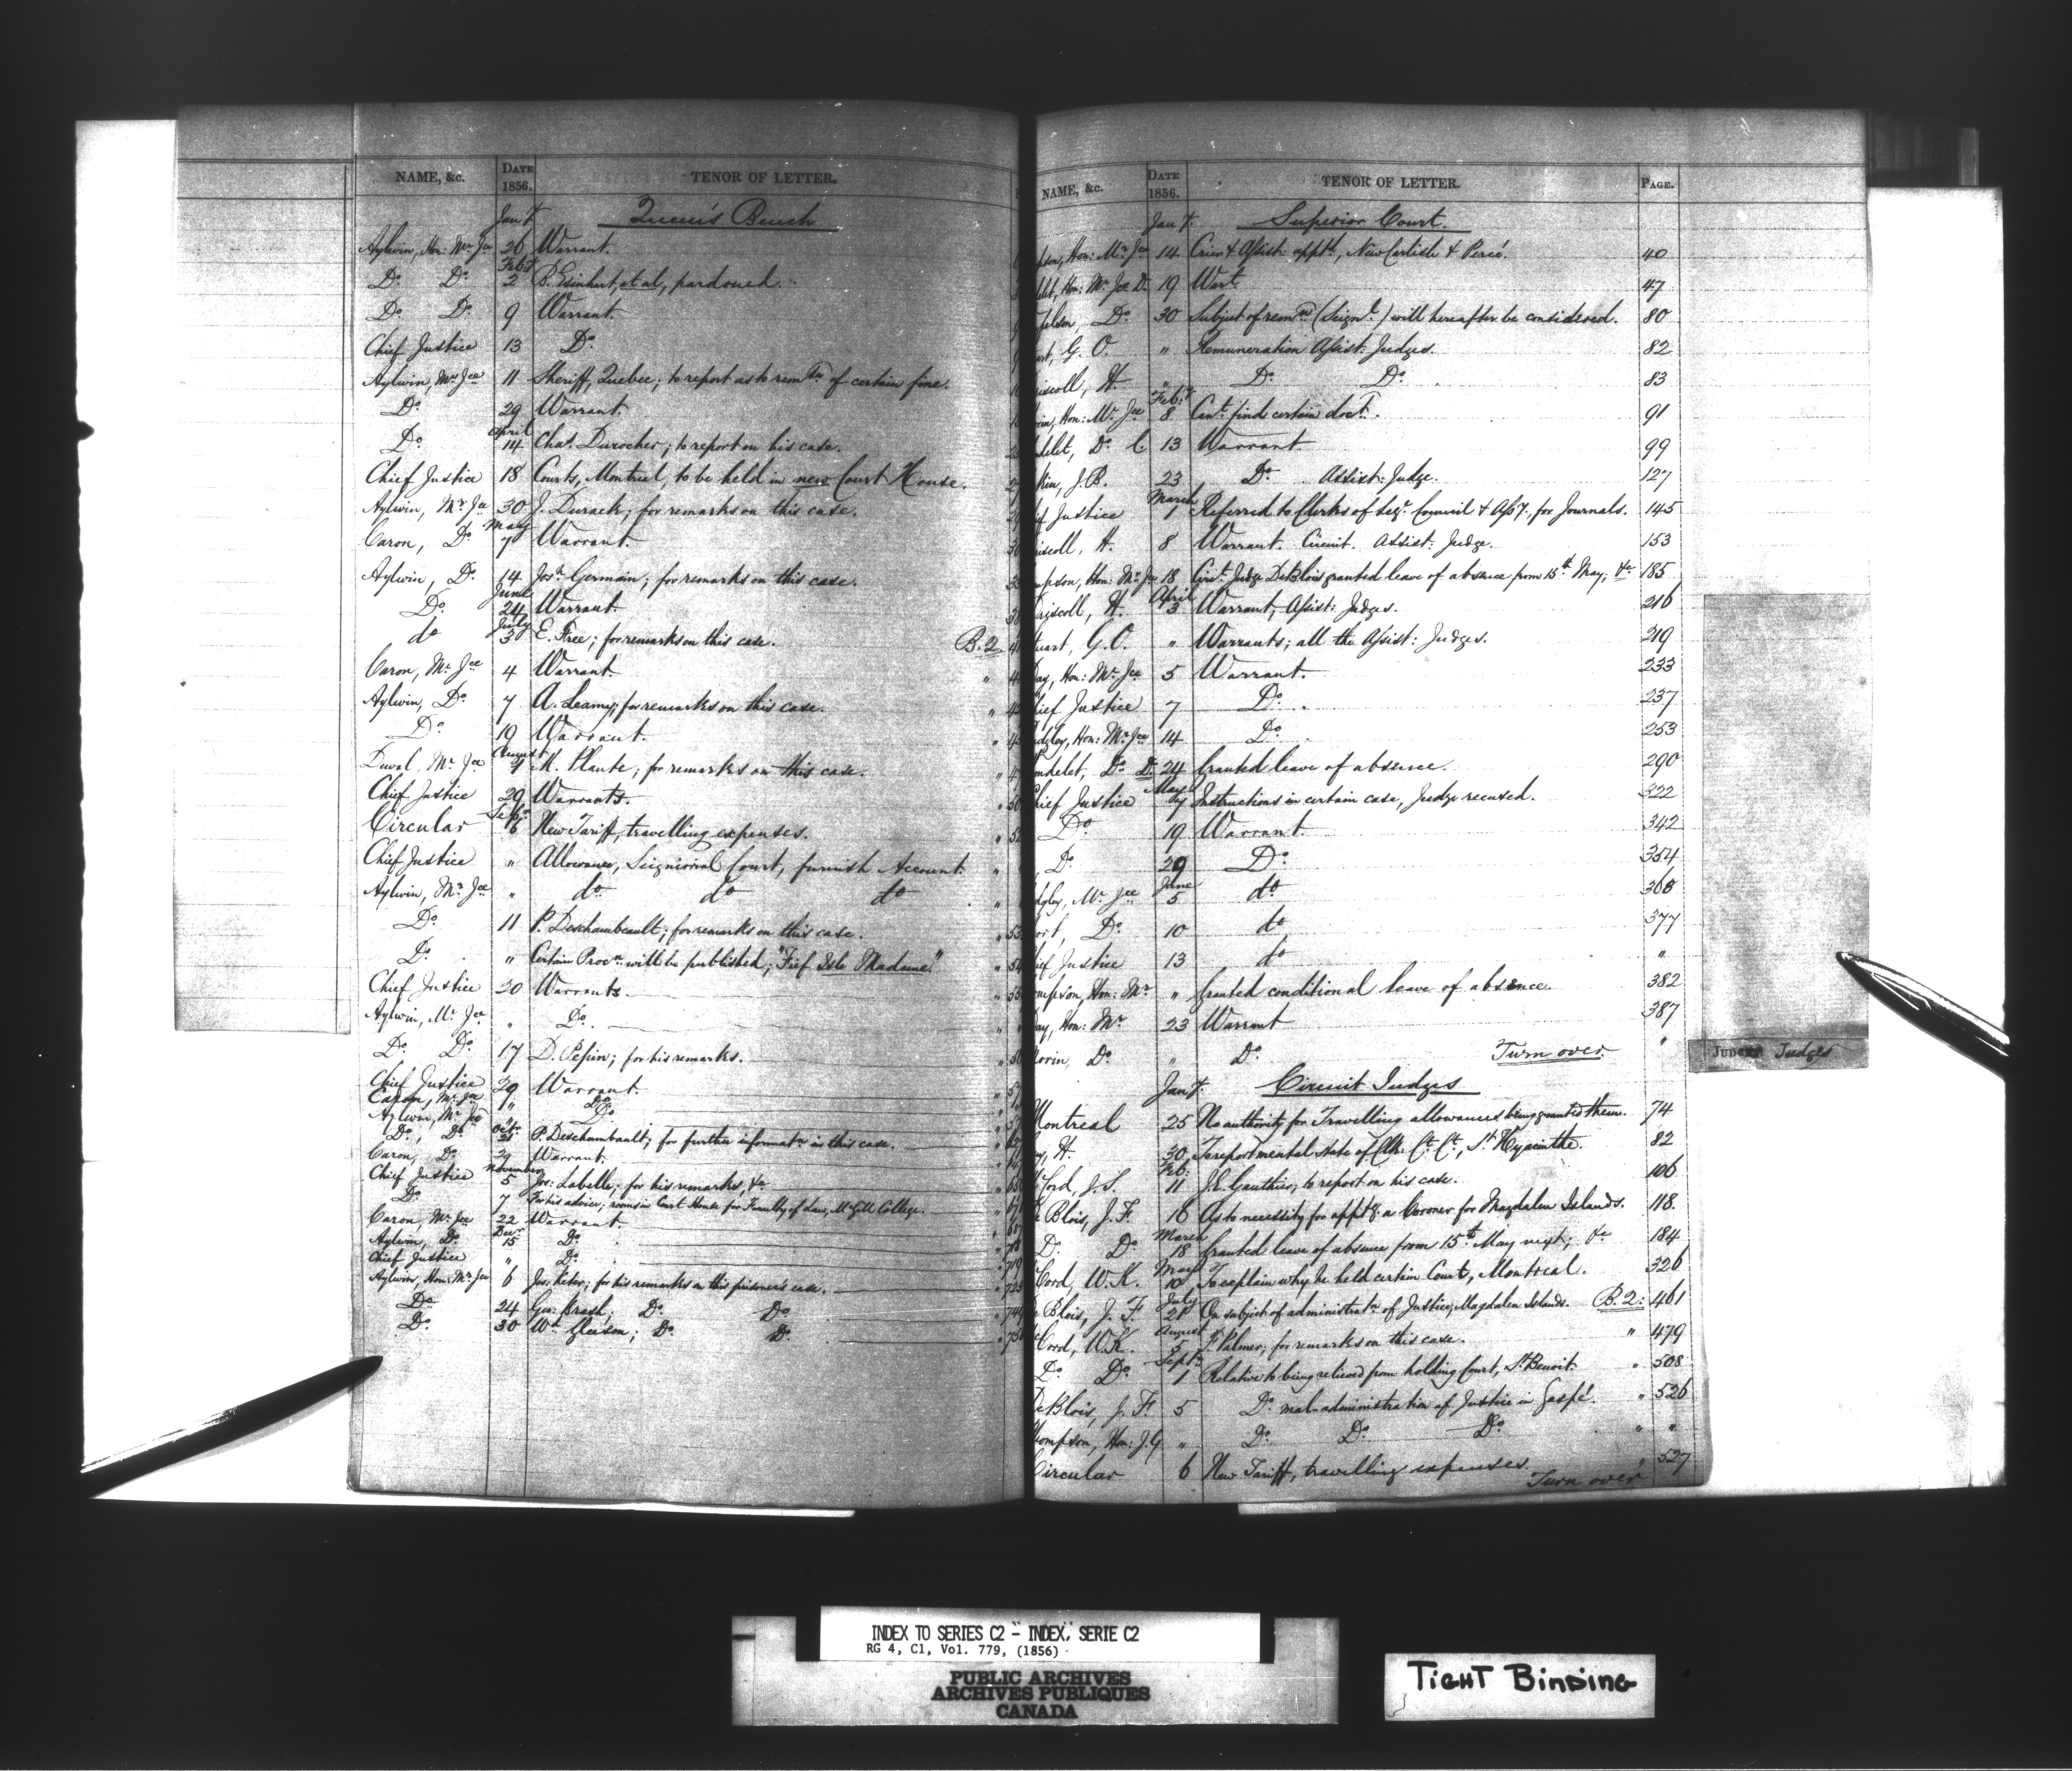 NAME, &c. DATE 1856. TENOR OF LETTER.
Jany. Queen's Bench
Aylwin, Hon: Mr. Jce 26 Warrant.
Feby
Do. Do. 2 B. Esinhart, et al, pardoned.
Do. Do. 9 Warrant.
Chief Justice 13 Do.
Aylwin, Mr. Jce 11 Sheriff, Quebec; to report as to remon of certain fine.
Do. 29 Warrant.
April
Do. 14 Chas. Durocher; to report on his case.
Chief Justice 18 Courts, Montreal, to be held in new Court House.
Aylwin, Mr. Jce 30 J. Durack; for remarks on this case.
May
Caron, Do. 7 Warrant.
Aylwin, Do. 14 Josh. Germain; for remarks on this case.
June
Do. 24 Warrant.
July
do 3 E. Free; for remarks on this case. B.2
Caron, Mr. Jce 4 Warrant. "
Aylwin, Do. 7 A. Leamy; for remarks on this case. "
Do. 19 Warrant. "
August
Duval, Mr. Jce 7 M. Plante; for remarks on this case. "
Chief Justice 29 Warrants. "
Sept.
Circular 6 New Tariff, travelling expenses. "
Chief Justice " Allowance, Seigniorial Court, furnish Account. "
Aylwin, Mr. Jce " do do do "
Do. 11 P. Deschambeault; for remarks on this case. "
Do. " Certain Procn. will be published, "Fief Isle Madame." "
Chief Justice 20 Warrants. "
Aylwin, Mr. Jce " Do. "
Do. Do. 17 D. Pepin; for his remarks. "
Chief Justice 29 Warrant. "
Caron, Mr. Jce " Do.
Aylwin, Mr. Jce " Do.
Octr.
Do., Do. 21 P. Deschambault; for further informatn in this case. "
Caron, Do. 29 Warrant. "
November
Chief Justice 5 Jos: Labelle; for his remarks, &c "
Do. 7 For his advice; rooms in Court House for Faculty of Law, McGill College. "
Caron, Mr. Jce 22 Warrant. "
Decr.
Aylwin, Do. 15 Do. "
Chief Justice " Do. "
Aylwin, Hon: Mr. Jce 6 Jos. Keter; for his remarks on this prisoner's case. "
Do. 24 Geo: Brash; Do. Do. "
Do. 30 Wm. Gleeson; Do. Do. "
NAME, &c. DATE 1856. TENOR OF LETTER. PAGE.
Jany. Superior Court.
pson, Hon: Mr. Jce 14 Crier & Assist: apptd, New Carlisle & Percé. 40
delet, Hon: Mr. Jce D. 19 Wart. 47
pson, Do. 30 Subject of remn (Seignl.) will hereafter be considered. 80
art, G. O. " Remuneration Assist: Judges. 82
riscoll, H. " Do. Do. 83
Feby.
orin, Hon: Mr. Jce 8 Cant. find certain doct. 91
delet, Do. C 13 Warrant 99
kin, J. B. 23 Do. Assist: Judge. 127
March
ief Justice 1 Referred to Clerks of Legr. Council & Assy. for Journals. 145
riscoll, H. 8 Warrant. Circuit. Assist: Judge. 153
mpson, Hon: Mr. Jce 18 Circt. Judge DeBlois granted leave of absence from 15th May; &c 185
April
riscoll, H. 3 Warrant, Assist: Judges. 216
tuart, G. O. " Warrants; all the Assist: Judges. 219
Day, Hon: Mr. Jce 5 Warrant. 233
hief Justice 7 Do. 237
adgley, Hon: Mr. Jce 14 Do. 253
ndelet, Do. D. 24 Granted leave of absence. 290
May
hief Justice 7 Instructions in certain case, Judge recused. 322
Do 19 Warrant. 342
Do. 29 Do. 354
June
dgley, Mr. Jce 5 do 368
ort, Do. 10 do 377
ief Justice 13 do "
ompson, Hon: Mr. " Granted conditional leave of absence. 382
Day, Hon: Mr. 23 Warrant 387
Morin, Do. " Do. Turn over. "
Jany. Circuit Judges
Montreal 25 No authority for Travelling allowances being granted them. 74
y, H. 30 To report mental state of Clk: Ct. Ct., St. Hyacinthe. 82
Feb:
Cord, J. S. 11 J. E. Gauthier; to report on his case. 106
e Blois, J. F. 16 As to necessity for appt. of a Coroner for Magdalen Islands. 118.
March
Do. Do 18 Granted leave of absence from 15th May next; &c 184
May
Cord, W. K. 10 To explain why he held certain Court, Montreal. 326
July
e Blois, J. F. 21 On subject of administratn of Justice, Magdalen Islands. B.2: 461
August
Cord, W. K. 5 F. Palmer; for remarks on this case. " 479
Sept.
Do. Do. 1 Relative to being relieved from holding Court, St. Benoit. " 508
DeBlois, J. F. 5 Do. mal-administration of Justice in Gaspé. " 526
hompson, Hon: J. G. " Do. Do. Do. " "
Circular 6 New Tariff, travelling expenses. " 527
Turn over
JUDGES Judges
INDEX TO SERIES C2 - INDEX, SERIE C2
RG 4, C1, Vol. 779, (1856)
PUBLIC ARCHIVES
ARCHIVES PUBLIQUES
CANADA
TIGHT BINDING